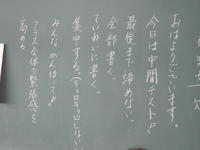 おはようございます。
今日は中間テスト!!
最後まで諦めない。
全部書く。
ていねいに書く。
集中する(キョロキョロしない)
みんながんばって!!
クラス全体で緊張感を
高める